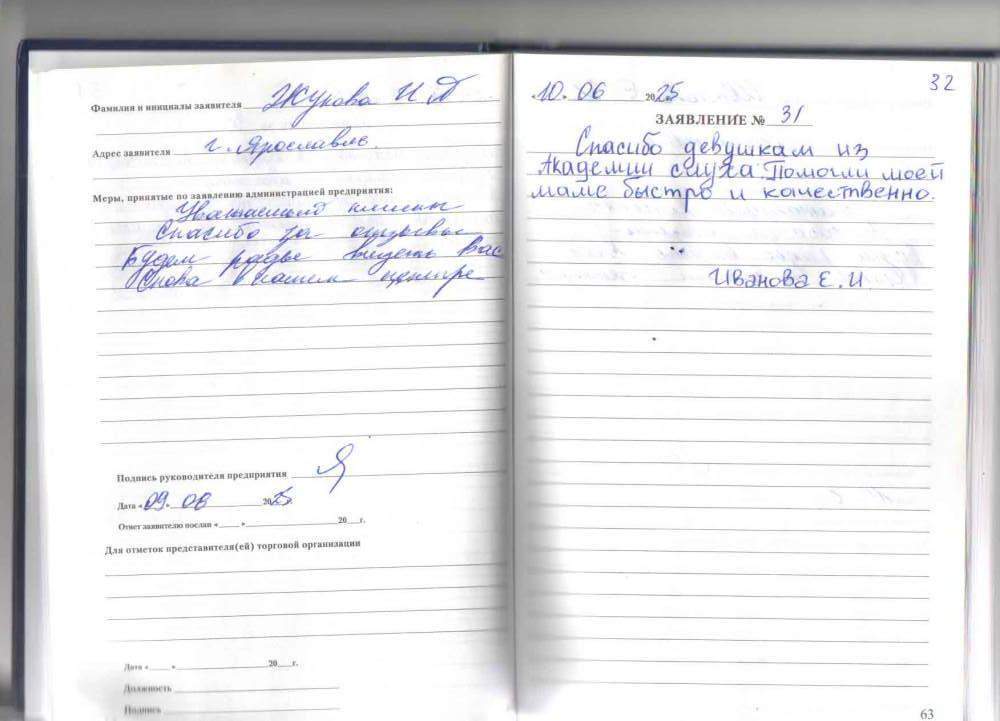 Фамилия и инициалы заявителя Жукова И Д
Адрес заявителя г. Ярославль.
Меры, принятые по заявлению администрацией предприятия:
Уважаемый клиент
Спасибо за отзыв
Будем рады видеть Вас
Снова в нашем центре
Подпись руководителя предприятия
Дата «09» 06 2025.
Ответ заявителю послан «____» 20___г.
Для отметок представителя(ей) торговой организации
Дата «____» 20___г.
Должность
Подпись
32
«10» 06 2025г.
ЗАЯВЛЕНИЕ № 31
Спасибо девушкам из
Академии слуха. Помогли моей
маме быстро и качественно.
Иванова Е. И.
63